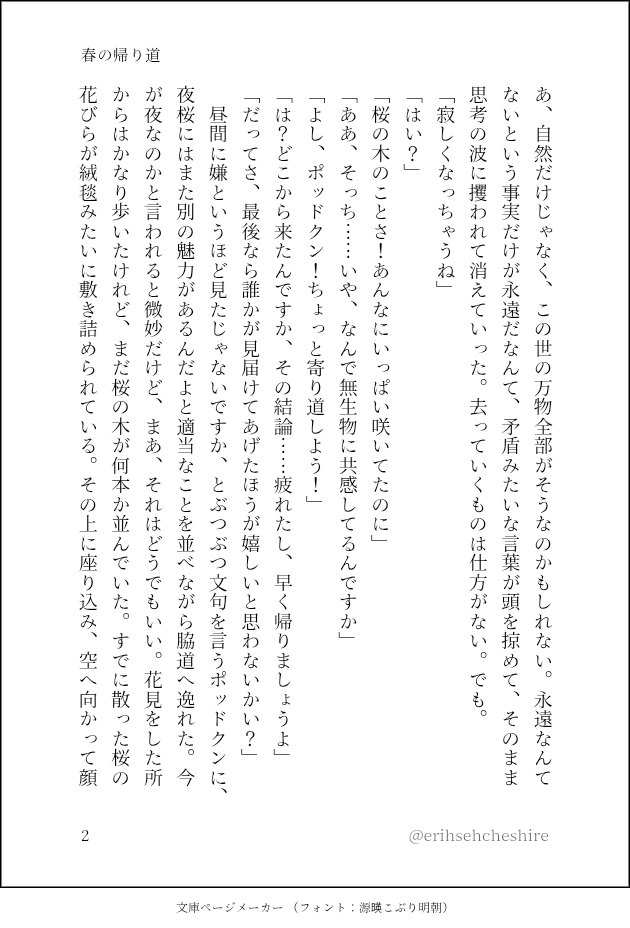 春の帰り道
あ、自然だけじゃなく、この世の万物全部がそうなのかもしれない。永遠なんて
ないという事実だけが永遠だなんて、矛盾みたいな言葉が頭を掠めて、そのまま
思考の波に攫われて消えていった。去っていくものは仕方がない。でも。
「寂しくなっちゃうね」
「はい?」
「桜の木のことさ!あんなにいっぱい咲いてたのに」
「ああ、そっち……いや、なんで無生物に共感してるんですか」
「よし、ポッドクン!ちょっと寄り道しよう!」
「は?どこから来たんですか、その結論……疲れたし、早く帰りましょうよ」
「だってさ、最後なら誰かが見届けてあげたほうが嬉しいと思わないかい?」
昼間に嫌というほど見たじゃないですか、とぶつぶつ文句を言うポッドクンに、
夜桜にはまた別の魅力があるんだよと適当なことを並べながら脇道へ逸れた。今
が夜なのかと言われると微妙だけど、まあ、それはどうでもいい。花見をした所
からはかなり歩いたけれど、まだ桜の木が何本か並んでいた。すでに散った桜の
花びらが絨毯みたいに敷き詰められている。その上に座り込み、空へ向かって顔
2
@erihsehcheshire
文庫ページメーカー(フォント:源暎こぶり明朝)